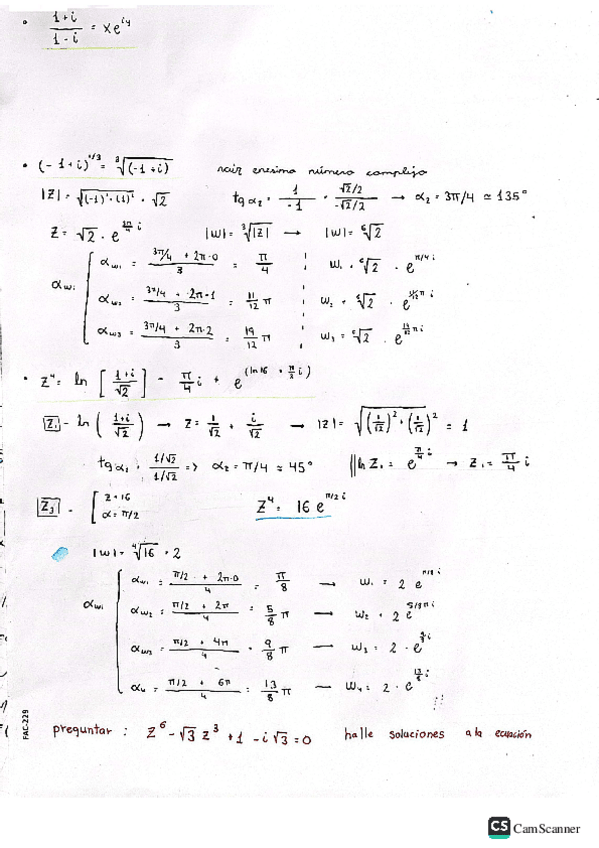 • 1+i / 1-i = xe^{iy}
• (-1+i)^{1/3} = ∛(-1+i) raiz enesima número complejo
|Z| = √((-1)²+(1)²) = √2 tg α₂ = 1/-1 = √2/2 / -√2/2 → α₂ = 3π/4 ≃ 135°
Z = √2 · e^{3π/4 i} |W| = ∛|Z| → |W| = ⁶√2
α_{w₁} = (3π/4 + 2π·0)/3 = π/4 W₁ = ⁶√2 · e^{π/4 i}
α_{wᵢ} α_{w₂} = (3π/4 + 2π·1)/3 = 11/12 π W₂ = ⁶√2 · e^{11/12 π i}
α_{w3} = (3π/4 + 2π·2)/3 = 19/12 π W₃ = ⁶√2 · e^{19/12 πi}
• Z⁴ = ln [1+i / √2] - π/4 i + e^{(ln 16 + π/2 i)}
Z₁ - ln (1+i / √2) → Z = 1/√2 + i/√2 → |Z| = √((1/√2)² + (1/√2)²) = 1
tg α₂ = 1/√2 / 1/√2 => α₂ = π/4 ≃ 45° ln Z₁ = e^{π/4 i} → Z₁ = π/4 i
Z₃ - [ Z = 16
α = π/2 Z⁴ = 16 e^{π/2 i}
|W| = ⁴√16 = 2
α_{w₁} = (π/2 + 2π·0)/4 = π/8 — W₁ = 2 e^{π/8 i}
α_{wᵢ} α_{w₂} = (π/2 + 2π)/4 = 5/8 π — W₂ = 2 e^{5/8 π i}
α_{w₃} = (π/2 + 4π)/4 = 9/8 π — W₃ = 2 · e^{9/8 i}
α₄ = (π/2 + 6π)/4 = 13/8 π — W₄ = 2 · e^{13/8 i}
preguntar : Z⁶ - √3 Z³ + 1 - i√3 = 0 halle soluciones a la ecuación
FAC-229
CS CamScanner